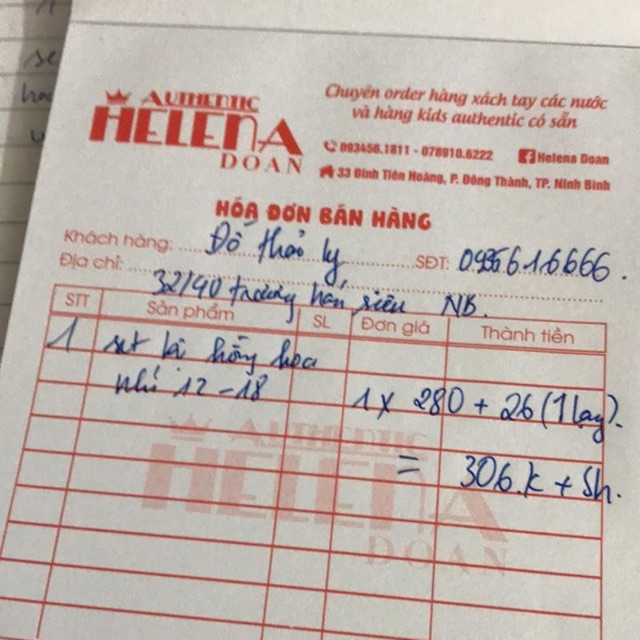 AUTHENTIC
HELENA
DOAN
Chuyên order hàng xách tay các nước
và hàng kids authentic có sẵn
093456.1811 - 078910.6222 Helena Doan
33 Đinh Tiên Hoàng, P. Đông Thành, TP. Ninh Bình
HÓA ĐƠN BÁN HÀNG
Khách hàng: Đỗ thảo ly SĐT: 0935616666.
Địa chỉ: 32/40 trương hán siêu NB.
STT Sản phẩm SL Đơn giá Thành tiền
1 set hồng hoa
nhí 12-18 1 x 280 + 26 (1 lay).
= 306.k + Sh.
AUTHENTIC
HELENA
DOAN